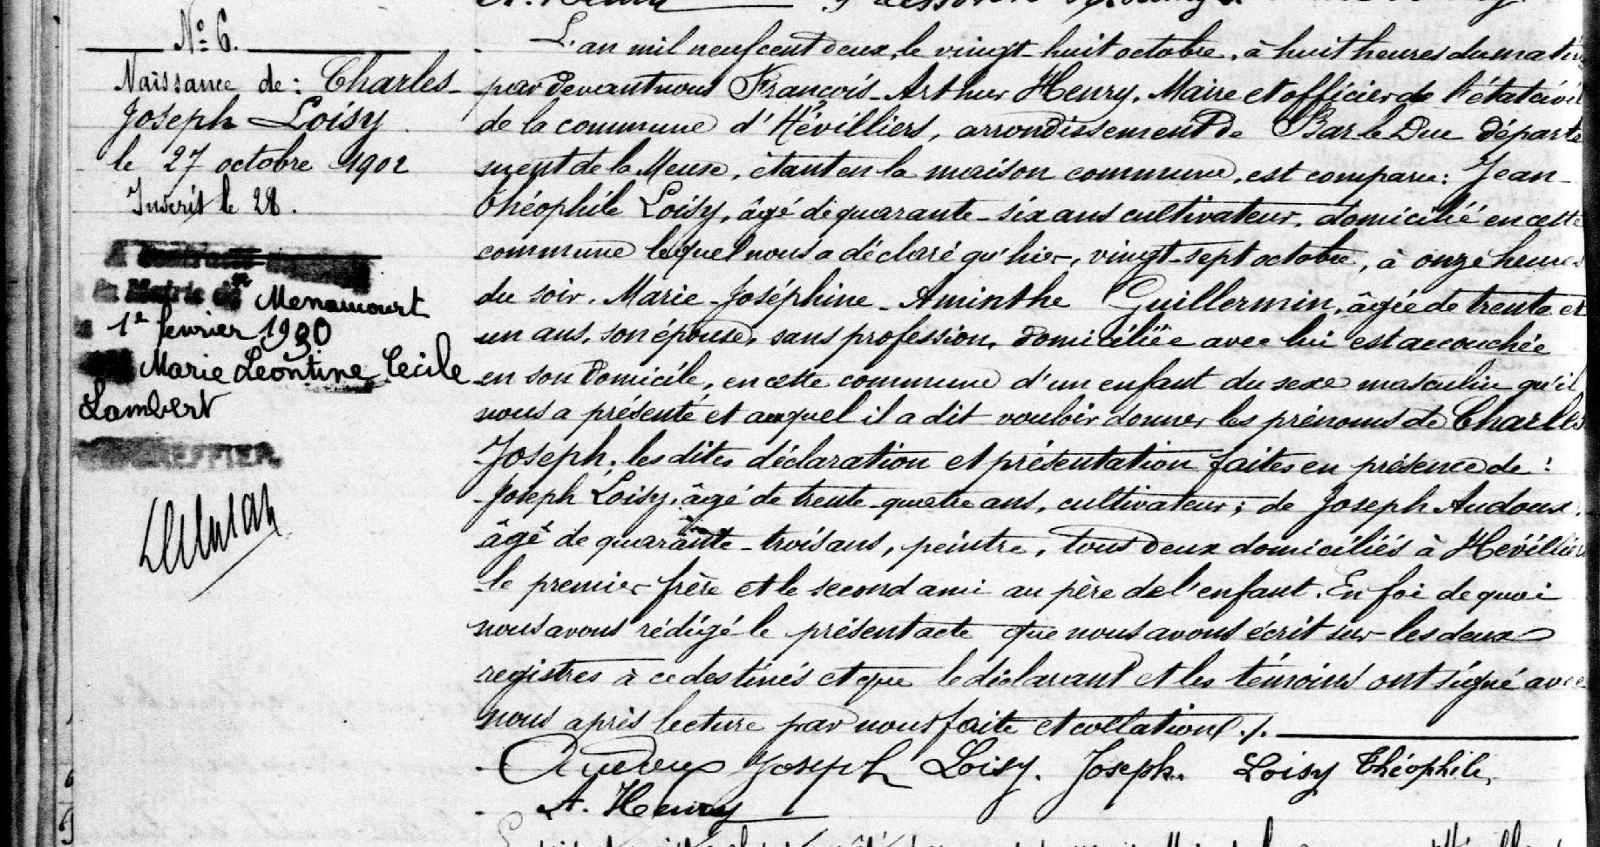 N° 6.
Naissance de : Charles
Joseph Loisy
le 27 octobre 1902
Inscrit le 28.
A contracté
à la Mairie de Menaucourt
1er fevrier 1930
Marie Leontine Cecile
Lambert
GREFFIER,
L'an mil neuf cent deux, le vingt-huit octobre, à huit heures du matin
par devant nous François-Arthur Henry, Maire et officier de l'état civil
de la commune d'Hévilliers, arrondissement de Bar-le-Duc départe
ment de la Meuse, étant en la maison commune, est comparu : Jean-
Théophile Loisy, âgé de quarante-six ans cultivateur, domicilié en cette
commune lequel nous a déclaré qu'hier, vingt-sept octobre, à onze heures
du soir, Marie-Joséphine-Aminthe Guillermin, âgée de trente et
un ans, son épouse, sans profession, domiciliée avec lui est accouchée
en son domicile, en cette commune d'un enfant du sexe masculin qu'il
nous a présenté et auquel il a dit vouloir donner les prénoms de Charles
Joseph, les dites déclaration et présentation faites en présence de :
Joseph Loisy, âgé de trente-quatre ans, cultivateur ; de Joseph Audoux,
âgé de quarante-trois ans, peintre, tous deux domiciliés à Hévilliers
le premier frère et le second ami au père de l'enfant. En foi de quoi
nous avons rédigé le présent acte que nous avons écrit sur les deux
registres à ce destinés et que le déclarant et les témoins ont signé avec
nous après lecture par nous faite et collation ./.
Joseph Loisy. Joseph. Loisy Théophile,
A. Henry